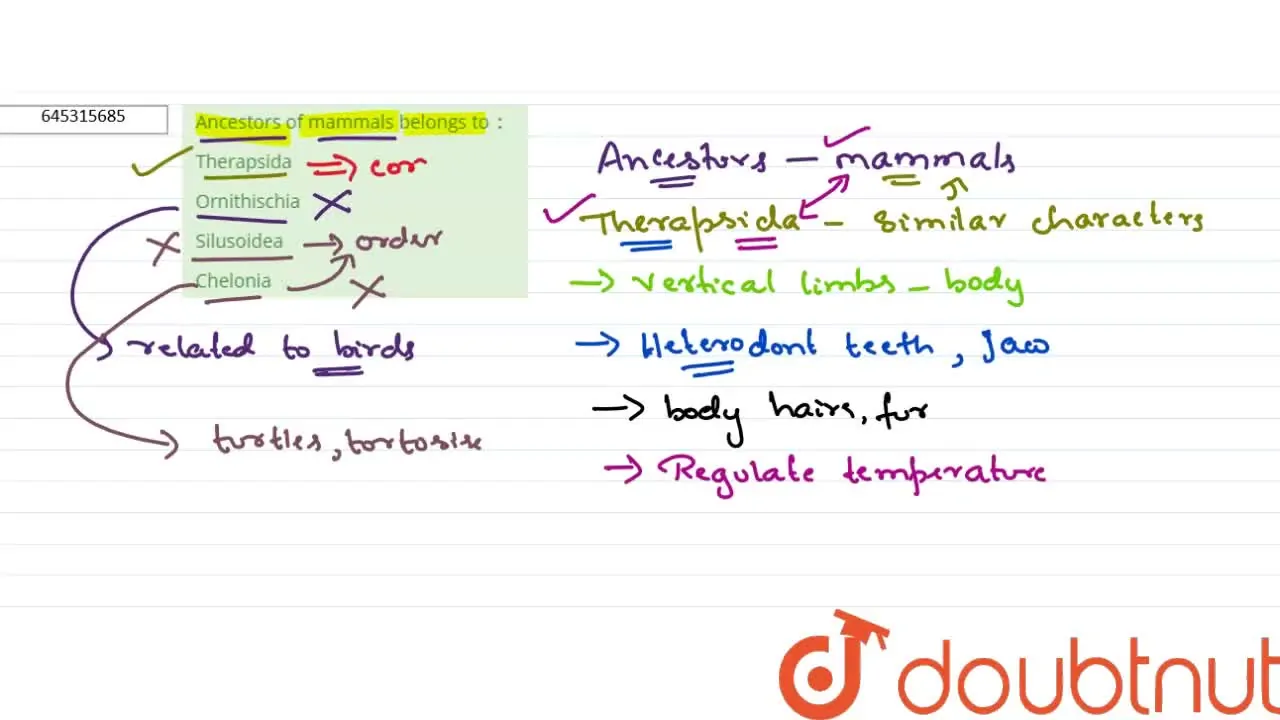 645315685
Ancestors of mammals belongs to :
Therapsida ⇒ cor
Ornithischia
Silusoidea → order
Chelonia
related to birds
turtles, tortosise
Ancestors - mammals
Therapsida - similar characters
→ vertical limbs - body
→ Heterodont teeth, Jaw
→ body hairs, fur
→ Regulate temperature
doubtnut